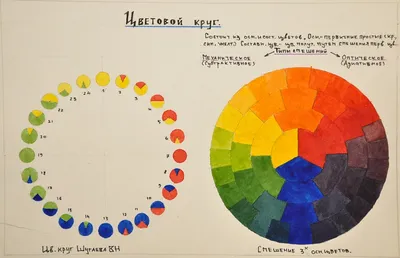 Цветовой круг.
Состоит из осн. и сост. цветов. Осн.- первичные простые (кр,
син, желт). Составн. цв.- цв. получ. путем смешения перв. цв.
Типы смешений
Механическое Оптическое
(Субтрактивное) (Адитивное)
24
23
22
21
20
19
18
17
16
15
14
13
12
11
10
9
8
7
6
5
4
3
2
Цв. круг Шугаева ВН
Смешение 3х осн. цветов.